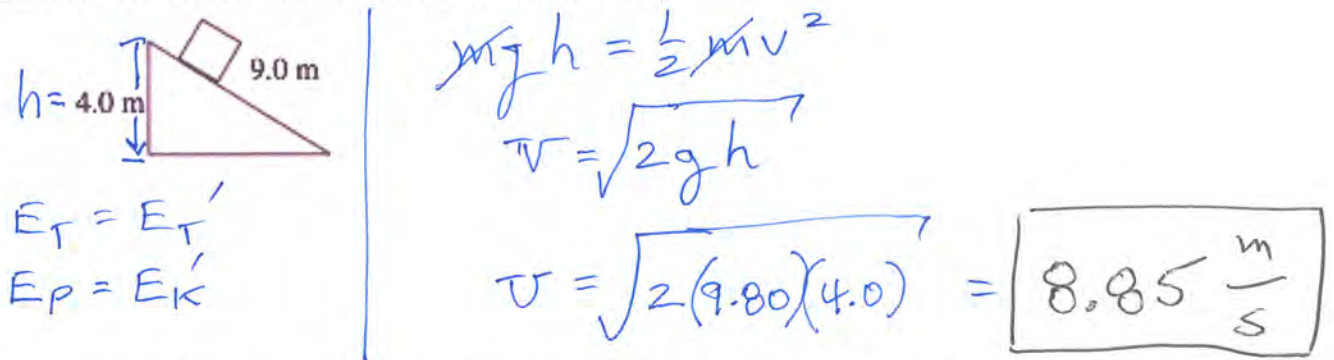 9.0 m
h = 4.0 m
E_T = E_T'
E_P = E_K'
mgh = ½mv²
v = √2gh
v = √2(9.80)(4.0) = 8.85 m/s